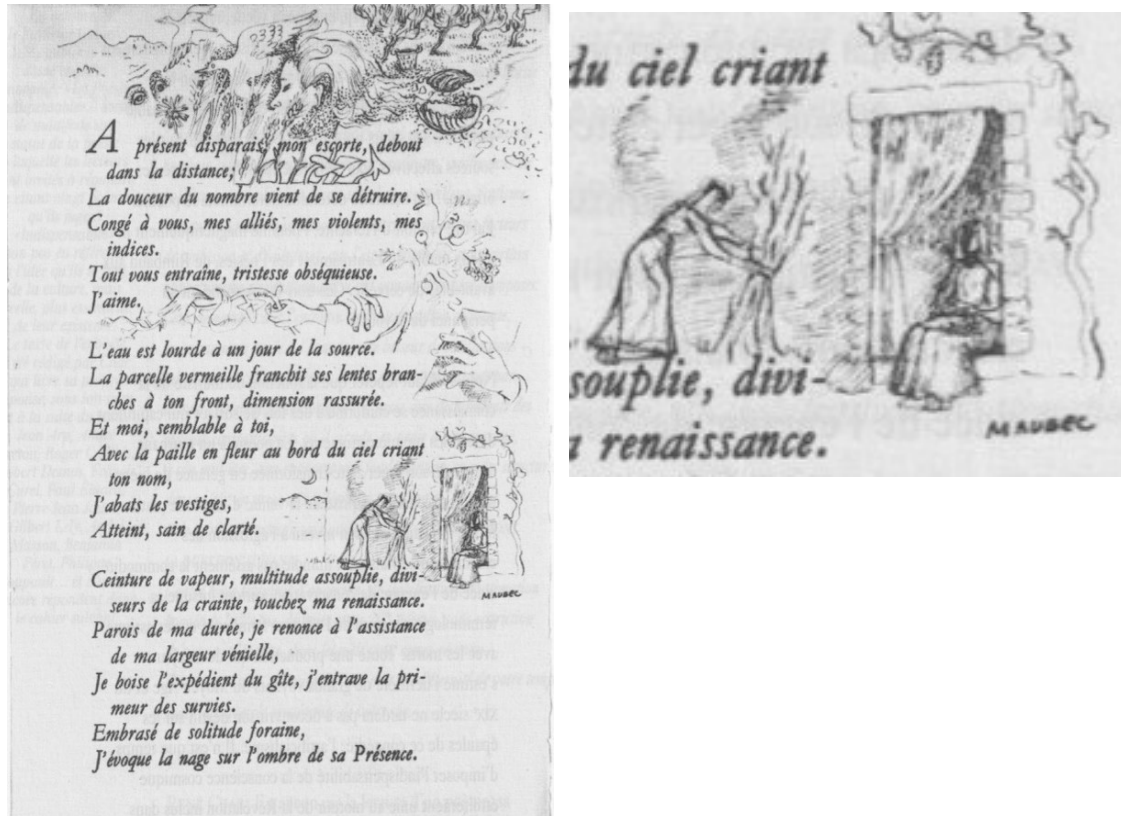 A présent disparais, mon escorte, debout
dans la distance;
La douceur du nombre vient de se détruire.
Congé à vous, mes alliés, mes violents, mes
indices.
Tout vous entraîne, tristesse obséquieuse.
J'aime.
L'eau est lourde à un jour de la source.
La parcelle vermeille franchit ses lentes bran-
ches à ton front, dimension rassurée.
Et moi, semblable à toi,
Avec la paille en fleur au bord du ciel criant
ton nom,
J'abats les vestiges,
Atteint, sain de clarté.
Ceinture de vapeur, multitude assouplie, divi-
seurs de la crainte, touchez ma renaissance.
Parois de ma durée, je renonce à l'assistance
de ma largeur vénielle,
Je boise l'expédient du gîte, j'entrave la pri-
meur des survies.
Embrasé de solitude foraine,
J'évoque la nage sur l'ombre de sa Présence.
MAUBEC
du ciel criant
souplie, divi-
renaissance.
MAUBEC